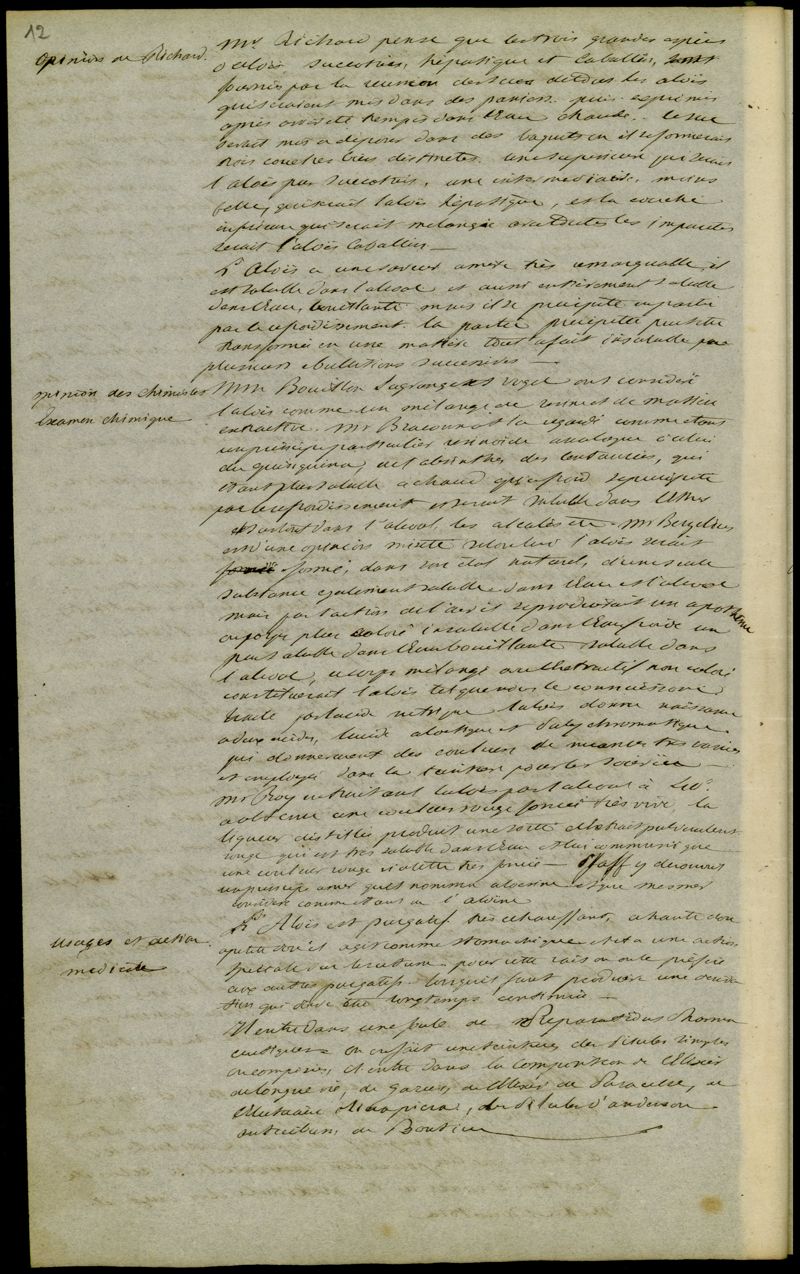 12
Opinion de Richard.
Mr. Richard pense que les trois grandes espèces
d'Aloës succotrin, hépatique et caballin, sont
fournies par la reunion des sucs de tous les aloës
qui seraient mis dans des paniers puis exprimés
après avoir été trempés dans l'Eau chaude. Le suc
serait mis a déposer dans des baquets ou il se formerait
trois couches très distinctes. Une superieure qui serait
l'aloës pur succotrin, une intermediaire, moins
belle, qui serait l'aloës hépatique, et la couche
inferieure qui serait melangée avec toutes les impuretés
serait l'aloës Caballin —
L'Aloës a une saveur amère très remarquable, il
est soluble dans l'alcool et aussi entièrement soluble
dans l'Eau bouillante mais il se précipite en partie
par le refroidissement la partie précipitée peut être
transformée en une matière tout a fait insoluble par
plusieurs ebullitions successives —
opinion des chimistes
Examen chimique
Mrs Bouillon Lagrange et Vogel ont consideré
l'aloës comme un mélange de resine et de matiere
extractive. Mr Braconnot la regardé comme etant
un principe particulier resinoïde analogue à celui
du quinquina, de l'absinthe des centaurées, qui
etant plus soluble a chaud qu'a froid se precipite
par le refroidissement et serait soluble dans l'Ether
et surtout dans l'alcool, les alcalis etc. Mr Berzelius
est d'une opinion mixte selon lui l'aloës serait
formé, dans son état naturel, d'une seule
substance egalement soluble dans l'Eau et l'alcool
mais par l'action de l'air il se produirait un apothème
ou corps plus coloré insoluble dans l'Eau froide un
peu soluble dans l'Eau bouillante soluble dans
l'alcool, ce corps mélangé avec l'extractif non coloré
constituerait l'aloës tel que nous le connaissons
traité par l'acide nitrique l'aloës donne naissance
a deux acides, l'acide aloetique et polychromatique
qui donnerent des couleurs de nuances très variées
et employés dans la teinture pour les soieries —
Mr Roy en traitant l'aloës par l'alcool à
a obtenu une couleur rouge foncée très vive, la
liqueur distillée produit une sorte d'extrait pulverulent
rouge qui est très soluble dans l'Eau et lui communique
une couleur rouge violette très foncée — Pfaff y decouvrit
un principe amer qu'il nomma aloenne et que Mesmer
considère comme etant de l'aloïne
Usages et action
medicale
L'Aloës est purgatif très echauffant, a haute dose
a petite dose il agit comme stomachique et il a une action
speciale sur le rectum pour cette raison on le préfère
aux autres purgatifs lorsqu'il faut produire une
qui doive être longtemps continuée —
Il entre dans une foule de Preparations Pharma
ceutiques on en fait une teinture des Pilules simples
ou composées, il entre dans la composition de l'Elixir
de longue vie, de garus, de l'Elixir de Paracelse, de
l'Electuaire Hiera picra, des Pilules d'anderson
de Bontius